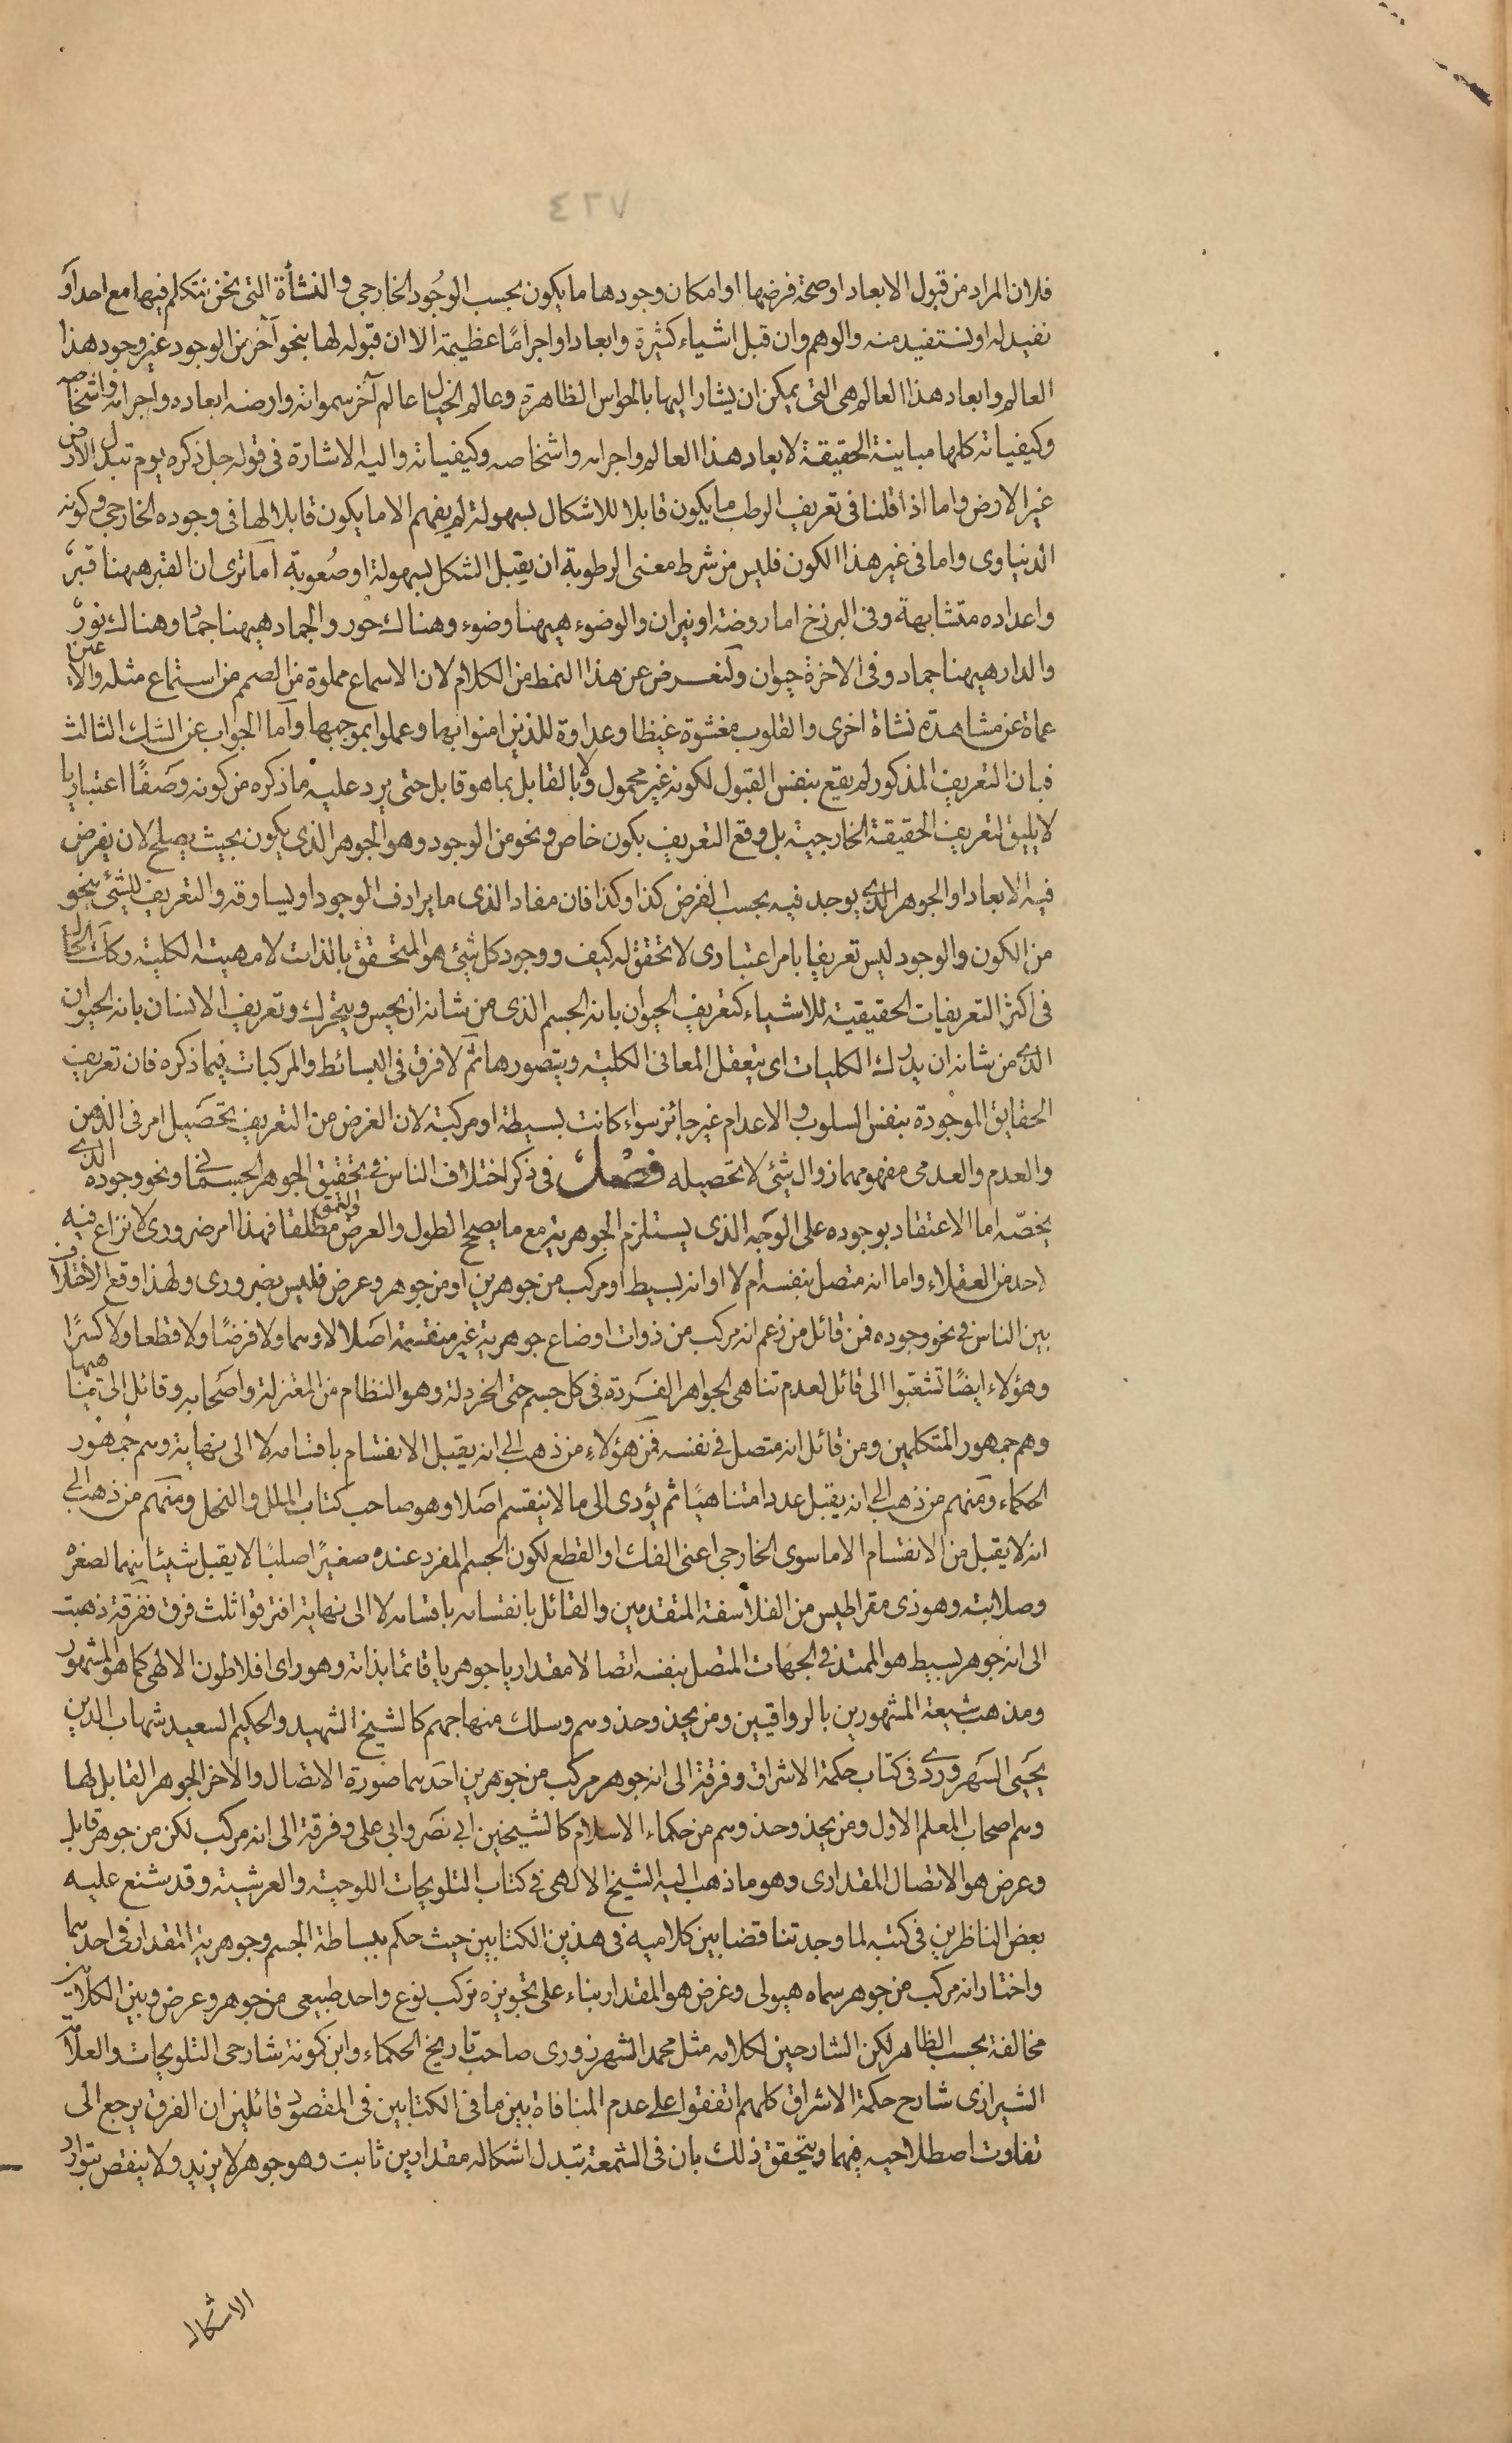 ٤٢٧
فلان المراد من قبول الابعاد او صحة فرضها او امكان وجودها ما يكون بحسب الوجُود الخارجي والنشأة التى نحن نتكلم فيها مع احد او
نفيد له او نستفيد منه والوهم وان قبل اشياء كثيرة وابعادا واجرامًا عظيمة الا ان قبوله لها بنحو آخر من الوجود غير وجود هذا
العالم وابعاد هذا العالم هى التى يمكن ان يشار اليها بالحواس الظاهرة وعالم الخيال عالم آخر سمواته وارضه ابعاده واجرامه واشخاصه
وكيفياته كلها مباينة الحقيقة لابعاد هذا العالم واجرامه واشخاصه وكيفياته واليه الاشارة فى قوله جل ذكره يوم تبدل الارض
غير الارض واما اذا قلنا فى تعريف الرطب ما يكون قابلا للاشكال بسهولة لم يفهم الا ما يكون قابلا لها فى وجوده الخارجي وكونه
الدنياوى واما فى غير هذا الكون فليس من شرط معنى الرطوبة ان يقبل الشكل بسهولة او صُعوبة اما ترى ان القبر ههنا قبرٌ
واعداده متشابهة وفى البرزخ اما روضة او نيران والوضوء هيهنا وضوء وهناك حور والجماد هيهنا جمادٌ وهناك نورٌ
والدار هيهنا جماد وفى الاخرة حيوان ولنعرض عن هذا النمط من الكلام لان الاسماع مملوة من الصمم من استماع مثله والاعين
عماة عن مشاهدة نشاة اخرى والقلوب مغشوة غيظا وعداوة للذين امنوا بها وعملوا بموجبها وأما الجواب عن الشك الثالث
فبان التعريف المذكور لم يقع بنفس القبول لكونه غير محمول ولا بالقابل بما هو قابل حتى يرد عليه ما ذكره من كونه وصفًا اعتباريا
لا يليق لتعريف الحقيقة الخارجية بل وقع التعريف بكون خاص ونحو من الوجود وهو الجوهر الذى يكون بحيث يصلح لان يفرض
فيه الابعاد او الجوهر الذى يوجد فيه بحسب الفرض كذا وكذا فان مفاد الذى ما يرادف الوجود او يساوقه والتعريف للشئ بنحو
من الكون والوجود ليس تعريفا بامر اعتبارى لا تحقق له كيف ووجود كل شئ هو المتحقق بالذات لا مهيته الكلية وكك الحال
فى اكثر التعريفات الحقيقية للاشياء كتعريف الحيوان بانه الجسم الذى من شانه ان يحس ويتحرك وتعريف الانسان بانه الحيوان
الذى من شانه ان يدرك الكليات اى يتعقل المعانى الكلية ويتصورها ثم لا فرق فى البسائط والمركبات فيما ذكره فان تعريف
الحقايق الموجُودة بنفس السلوب والاعدام غير جائز سواء كانت بسيطة او مركبة لان الغرض من التعريف تحصَيل امر فى الذهن
والعدم والعدمى مفهومهما زوال شئ لا تحصيله فصْل فى ذكر اختلاف الناس فى تحقيق الجوهر الجسمانى ونحو وجوده الذى
يخصّه اما الاعتقاد بوجوده على الوجَه الذى يستلزم الجوهرية مع ما يصحح الطول والعرض والعمق مطلقا فهذا امر ضرورى لا نزاع فيه
لاحد من العقلاء واما انه متصل بنفسه ام لا او انه بسيط او مركب من جوهرين او من جوهر وعرض فليس بضرورى ولهذا وقع الاختلاف
بين الناس فى نحو وجوده فمن قائل من زعم انه مركب من ذوات اوضاع جوهرية غير منقسمة اصَلا لا وهما ولا فرضًا ولا قطعا ولا كسرًا
وهؤلاء ايضًا تشعبوا الى قائل لعدم تناهى الجواهر الفَردة فى كل جسم حتى الخردلة وهو النظام من المعتزلة واصَحابه وقائل الى تناهيها
وهم جمهور المتكلمين ومن قائل انه متصل فى نفسه فمن هؤلاء من ذهب الى انه يقبل الانقسام باقسامه لا الى نهاية وهم جُمهوْر
الحكماء ومنهم من ذهب الى انه يقبل عددا متناهيًا ثم يؤدى الى ما لا ينقسم اصَلا وهو صاحب كتاب الملل والنحل ومنهم من ذهب الى
انه لا يقبل من الانقسام الا ما سوى الخارجى اعنى الفك او القطع لكون الجسم المفرد عنده صغيرًا صلبًا لا يقبل شيئا منهما لصغره
وصلابته وهو ذى مقراطيس من الفلاسفة المتقدمين والقائل بانقسامه باقسامه لا الى نهاية افترقوا ثلث فرق ففرقة ذهبت
الى انه جوهر بسيط هو الممتد فى الجهَات المتصل بنفسه اتصالا مقداريا جوهريا قائما بذاته وهو راى افلاطون الالهى كما هو المشهور
ومذهب شيعة المشهورين بالرواقيين ومن يحذ وحذوهم وسلك منهاجهم كالشيخ الشهيد والحكيم السعيد شهاب الدين
يحيَى السَهروردى فى كتاب حكمة الاشراق وفرقة الى انه جوهر مركب من جوهرين احَدهما صورة الاتصال والاخر الجوهر القابل لها
وهم اصحاب المعلم الاول ومن يحذ وحذوهم من حكماء الاسلام كالشيخين ابى نصَر وابى على وفرقة الى انه مركب لكن من جوهر قابل
وعرض هو الاتصال المقدارى وهو ما ذهب اليه الشيخ الالهى فى كتاب التلويحات اللوحية والعرشية وقد شنع عليه
بعض الناظرين فى كتبه لما وجد تناقضا بين كلاميه فى هذين الكتابين حيث حكم ببساطة الجسم وجوهرية المقدار فى احدهما
واختار انه مركب من جوهر سماه هيولى وعرض هو المقدار بناء على تجويزه تركب نوع واحد طبيعى من جوهر وعرض وبين الكلامين
مخالفة بحسب الظاهر لكن الشارحين لكلامه مثل محمد الشهرزورى صاحب تاريخ الحكماء وابن كمونة شارحى التلويحات والعلامة
الشيرازى شارح حكمة الاشراق كلهم اتفقوا على عدم المنافاة بين ما فى الكتابين فى المقصود قائلين ان الفرق يرجع الى
تفاوت اصطلاحيه فيهما ويتحقق ذلك بان فى الشمعة تبدل اشكاله مقدارين ثابت وهو جوهر لا يزيد ولا ينقص بتوارد
الاشكال